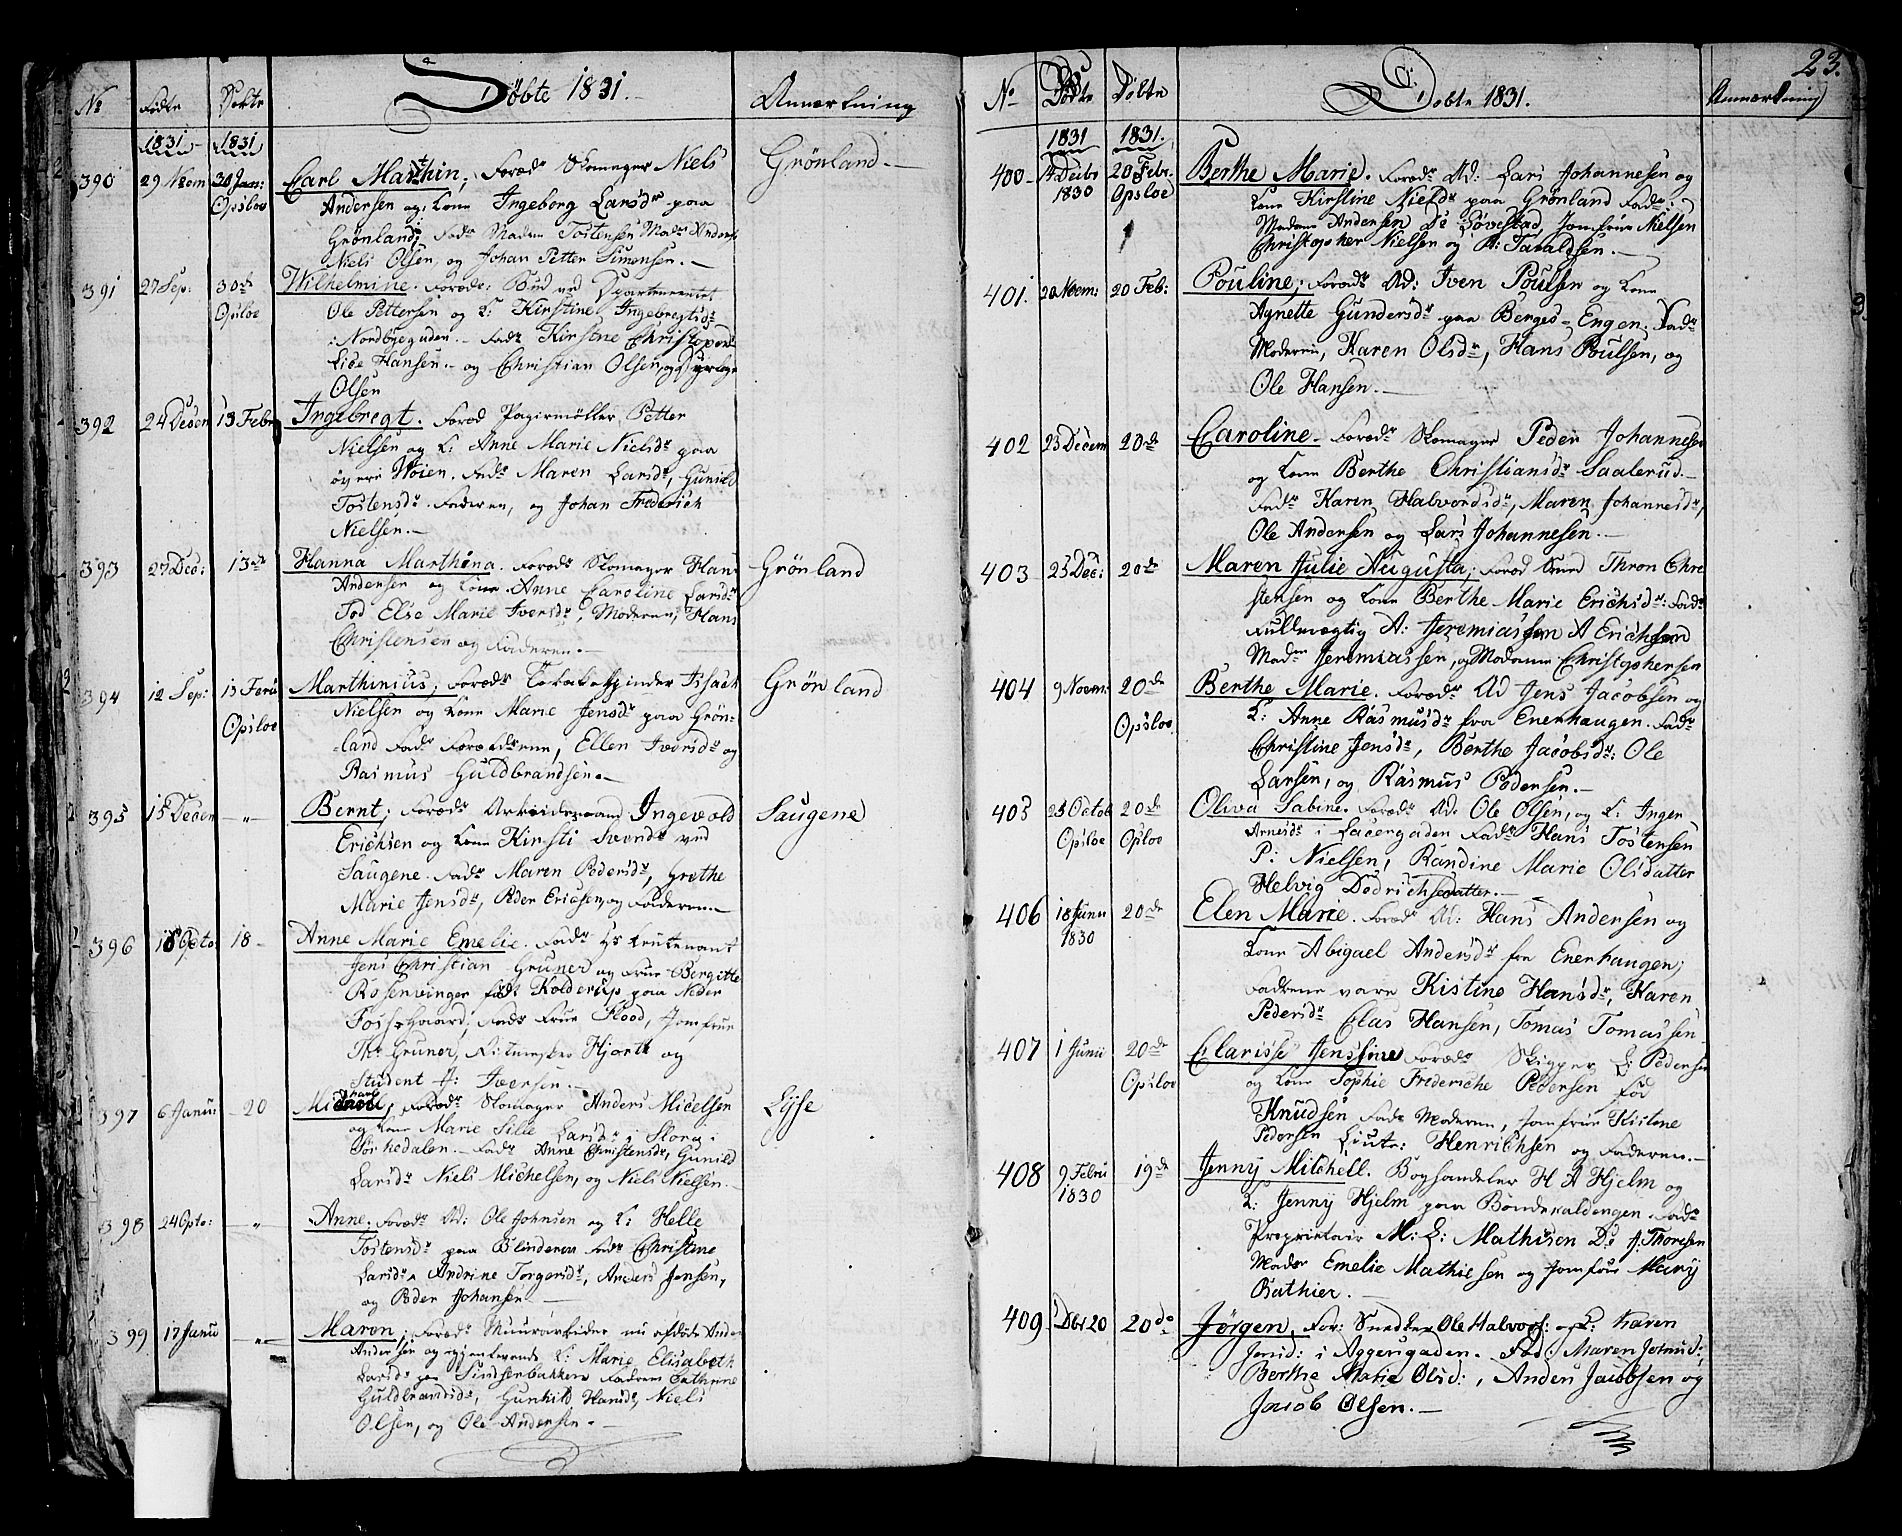 No Fødte Døbte Døbte 1831. Anmærkning
1831 1831
390 29 Novem 30 Jan: Carl Marthin, Foræd: Skomager Niels Grönland.
Opsloe Andersen og Kone Ingeborg Larsdr paa
Grönland, Fadr Madm Tostensen Madr Anders
Niels Olsen, og Johan Petter Simensen.
391 27 Sep: 30de Wilhelmine. Forældr: Bud ved Departementet
Opsloe Ole Pettersen og K: Kirstine Ingebregtsdr
Nordbyegaden. Fadr Kirstne Christophers
Lise Hansen. og Christian Olsen, og
Olsen
392 24 Decem 13 Febr Ingebregt. Foræd Papirmøller Petter
Nielsen og K: Anne Marie Nielsdr paa
øvere Woien. Fadr Maren Larsdr, Gunild
Tostensdr Faderen, og Johan Frederich
Nielsen.
393 27 Dec: 13de Hanna Marthina. Forædr Skomager Hans Grönland
Andersen og Kone Anne Caroline Larsdr
Fad Else Marie Iversdr, Moderen, Hans
Christensen og Faderen.
394 12 Sep: 13 Feru Marthinius, Forædr Tobakspinder Issach Grönland
Opsloe Nielsen og Kone Marie Jensdr paa Grön-
land Fadr Forældrene, Ellen Iversdr og
Rasmus Guldbrandsen.
395 15 Decem " Bernt, Forædr Arbeidsmand Ingevold Saugene
Erichsen og Kone Kirsti Svendr ved
Saugene. Fadr Maren Pedersdr, Grethe
Marie Jensdr, Peder Erichsen og Faderen.
396 18 Octo 18 Anne Marie Emelie. Fadr Hr Leutenant
Jens Christian Gruner og Frue Bergitte
Rosenvinger født Kolderup paa Neder
Fossegaard, Fadr Frue Flood, Jomfrue
Th: Gruner, Ritmester Hjorth og
Student A: Iversen.
397 6 Janui 20 Michael, Forædr Skomager Anders Micelsen Lyse
og Kone Marie Sille Larsdr i
Sörkedalen. Fadr Anne Christensdr, Gunild
Larsdr Niels Michelsen, og Niels Nielsen.
398 24 Opto: " Anne. Forædr Ad: Ole Johnsen og K: Helle
Tostensdr paa Blinderen Fadr Christine
Larsdr Andrine Torgersdr, Anders Jensen,
og Peder Johansen
399 17 Janu " Maren, Forædr Muurarbeider nu afdöde Ander
Andersen og igjenlevende K: Marie Elisabeth
Larsdr paa Sinsenbakken Fadrene Cathrine
Guldbrandsdr, Gunhild Hansdr, Niels
Olsen, og Ole Andersen.
23.
No Födte Dòbte Dobte 1831. Anmærkning
1831 1831.
400 Decbr 20 Febr. Berthe Marie. Forædr Ad: Lars Johannesen og
1830 Opsloe Kone Kirstine Nielsdr paa Grönland Fadr.
Madame Andersen Do Søvestad, Jomfrue Nielsen
Christopher Nielsen og A: Taraldsen.
401. 20 Noem: 20 Feb: Pouline, Forædr Ad: Iven Poulsen og Kone
Agnette Gundersdr paa Berges Engen. Fadr
Moderen, Karen Olsdr, Hans Poulsen, og
Ole Hansen.
402 23 Decem 20de Caroline. Forædr Skomager Peder Johannesen
og Kone Berthe Christiansdr Saalerud.
Fadr Karen Halvordsdr, Maren Johannesdr,
Ole Andersen og Lars Johannesen.
403 25 Dec: 20de Maren Julie Augusta, Foræd Smed Thron Chre
stensen og Kone Berthe Marie Erichsdr: Fadr
Fuldmægtig A: Jeremiassen A Erichsen
Madm Jeremiassen, og Madame Christophersen
404 9 Novm: 20de Berthe Marie. Forædr Ad Jens Jacobsen og
Opsloe K: Anne Rasmusdr fra Enerhaugen. Fadr
Christine Jensdr, Berthe Jacobsdr: Ole
Larsen, og Rasmus Pedersen.
405 25 Octob 20de Oliva Sabine. Forædr Ad: Ole Olsen, og K: Inger
Opsloe Opsloe Arnesdr i Lakegaden Fadr Hans Tostensen
P: Nielsen, Randine Marie Olsdatter
Helvig Dedrichsdatter.
406 18 Junu 20de Elen Marie. Forædr Ad: Hans Andersen og
1830 Kone Abigael Andersdr fra Enerhaugen;
Fadrene vare Kistine Hansdr, Karen
Pedersdr Elas Hansen, Tomas Tomassen
407 1 Junii 20de Clarisse Jensine Forædr Skipper L: Pedersen
Opsloe og Kone Sophie Frederiche Pedersen föd
Knudsen Fadr Moderen, Jomfrue Kistene
Pedersen Leutn: Henrichsen og Faderen.
408 9 Febru 19de Jenny Mitchell. Boghandeler H A Hjelm og
1830 K: Jenny Hjelm paa Böndevaldengen. Fadr
Proprietair M: L: Mathisen Do J. Thoresen
Madm Emelie Mathiesen og Jomfrue Mary
Bathier.
409 Dbr 20 20de Jørgen, For: Snedker Ole Halvors: og K: Karen
Jensd: i Aggersgaden. Fad: Maren Johnsd:,
Berthe Marie Olsd:, Anders Jacobsen og
Jacob Olsen.